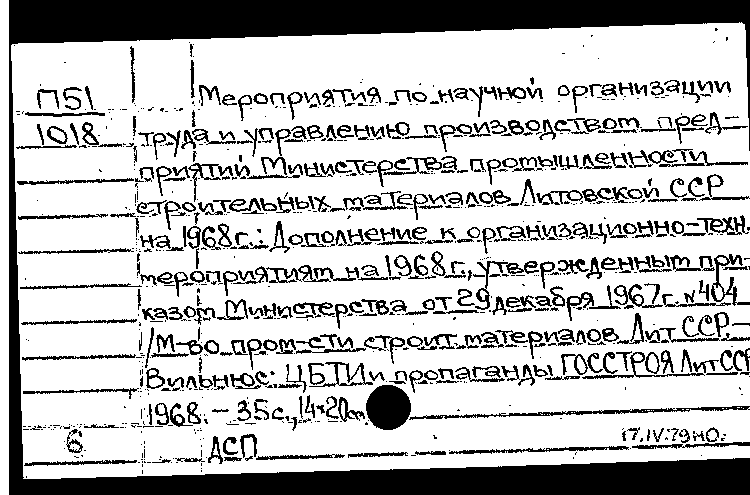 П51
1018
Мероприятия по научной организации
труда и управлению производством пред-
приятий Министерства промышленности
строительных материалов Литовской ССР
на 1968г.: Дополнение к организационно-техн.
мероприятиям на 1968 г., утвержденным при-
казом Министерства от 29 декабря 1967г. №404
/М-во пром-сти строит. материалов Лит ССР.-
Вильнюс: ЦБТИ и пропаганды ГОССТРОЯ Лит ССР
1968. - 35 с., 14×20см
6
ДСП
17.IV.79